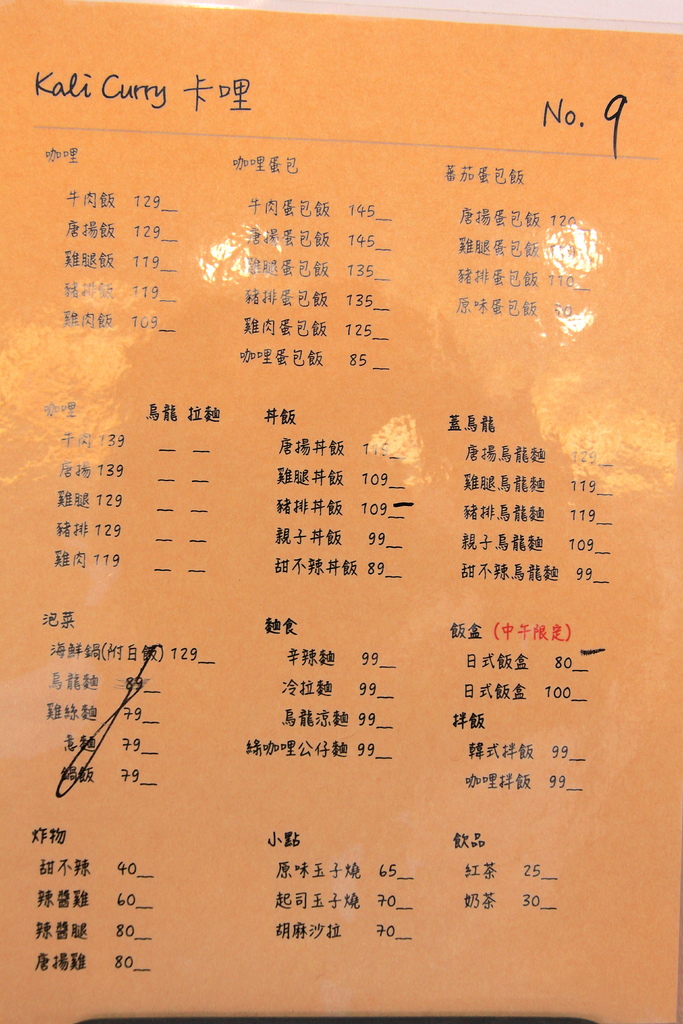 Kali Curry 卡哩
No. 9
咖哩
牛肉飯 129__
唐揚飯 129__
雞腿飯 119__
豬排飯 119__
雞肉飯 109__
咖哩蛋包
牛肉蛋包飯 145__
唐揚蛋包飯 145__
雞腿蛋包飯 135__
豬排蛋包飯 135__
雞肉蛋包飯 125__
咖哩蛋包飯 85__
蕃茄蛋包飯
唐揚蛋包飯 120
雞腿蛋包飯
豬排蛋包飯 110__
原味蛋包飯
咖哩 烏龍 拉麵
牛肉 139 __ __
唐揚 139 __ __
雞腿 129 __ __
豬排 129 __ __
雞肉 119 __ __
丼飯
唐揚丼飯 115__
雞腿丼飯 109__
豬排丼飯 109__
親子丼飯 99__
甜不辣丼飯 89__
蓋烏龍
唐揚烏龍麵 129__
雞腿烏龍麵 119__
豬排烏龍麵 119__
親子烏龍麵 109__
甜不辣烏龍麵 99__
泡菜
海鮮鍋(附白飯) 129__
烏龍麵 89__
雞絲麵 79__
意麵 79__
鍋飯 79__
麵食
辛辣麵 99__
冷拉麵 99__
烏龍涼麵 99__
綠咖哩公仔麵 99__
飯盒 (中午限定)
日式飯盒 80__
日式飯盒 100__
拌飯
韓式拌飯 99__
咖哩拌飯 99__
炸物
甜不辣 40__
辣醬雞 60__
辣醬腿 80__
唐揚雞 80__
小點
原味玉子燒 65__
起司玉子燒 70__
胡麻沙拉 70__
飲品
紅茶 25__
奶茶 30__